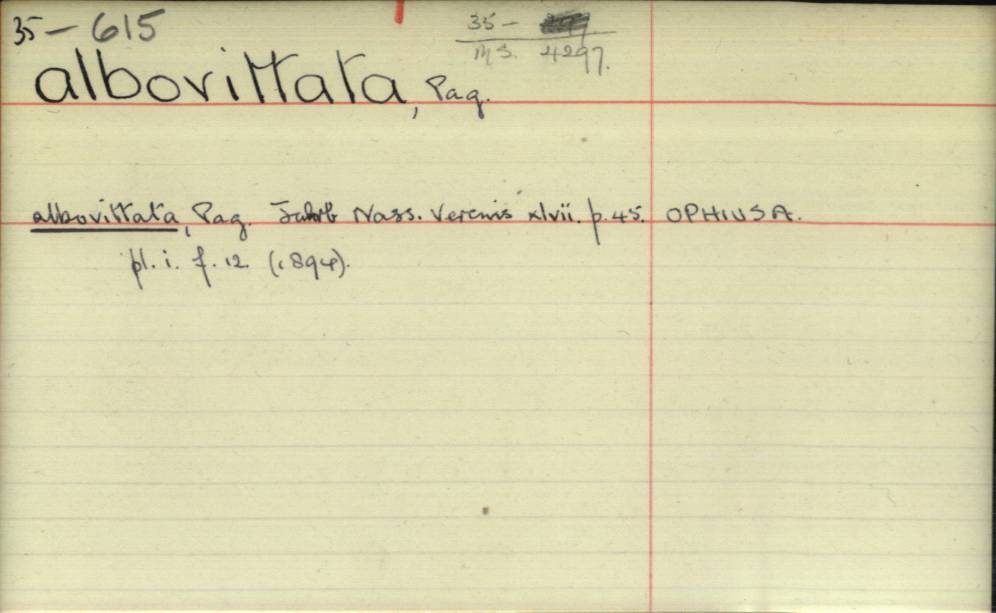 35-615
35-
M.S. 4297.
albovittata, Pag.
albovittata, Pag. Jahrb Nass. Vereins xlvii. p.45. OPHIUSA.
pl. i. f. 12. (1894).